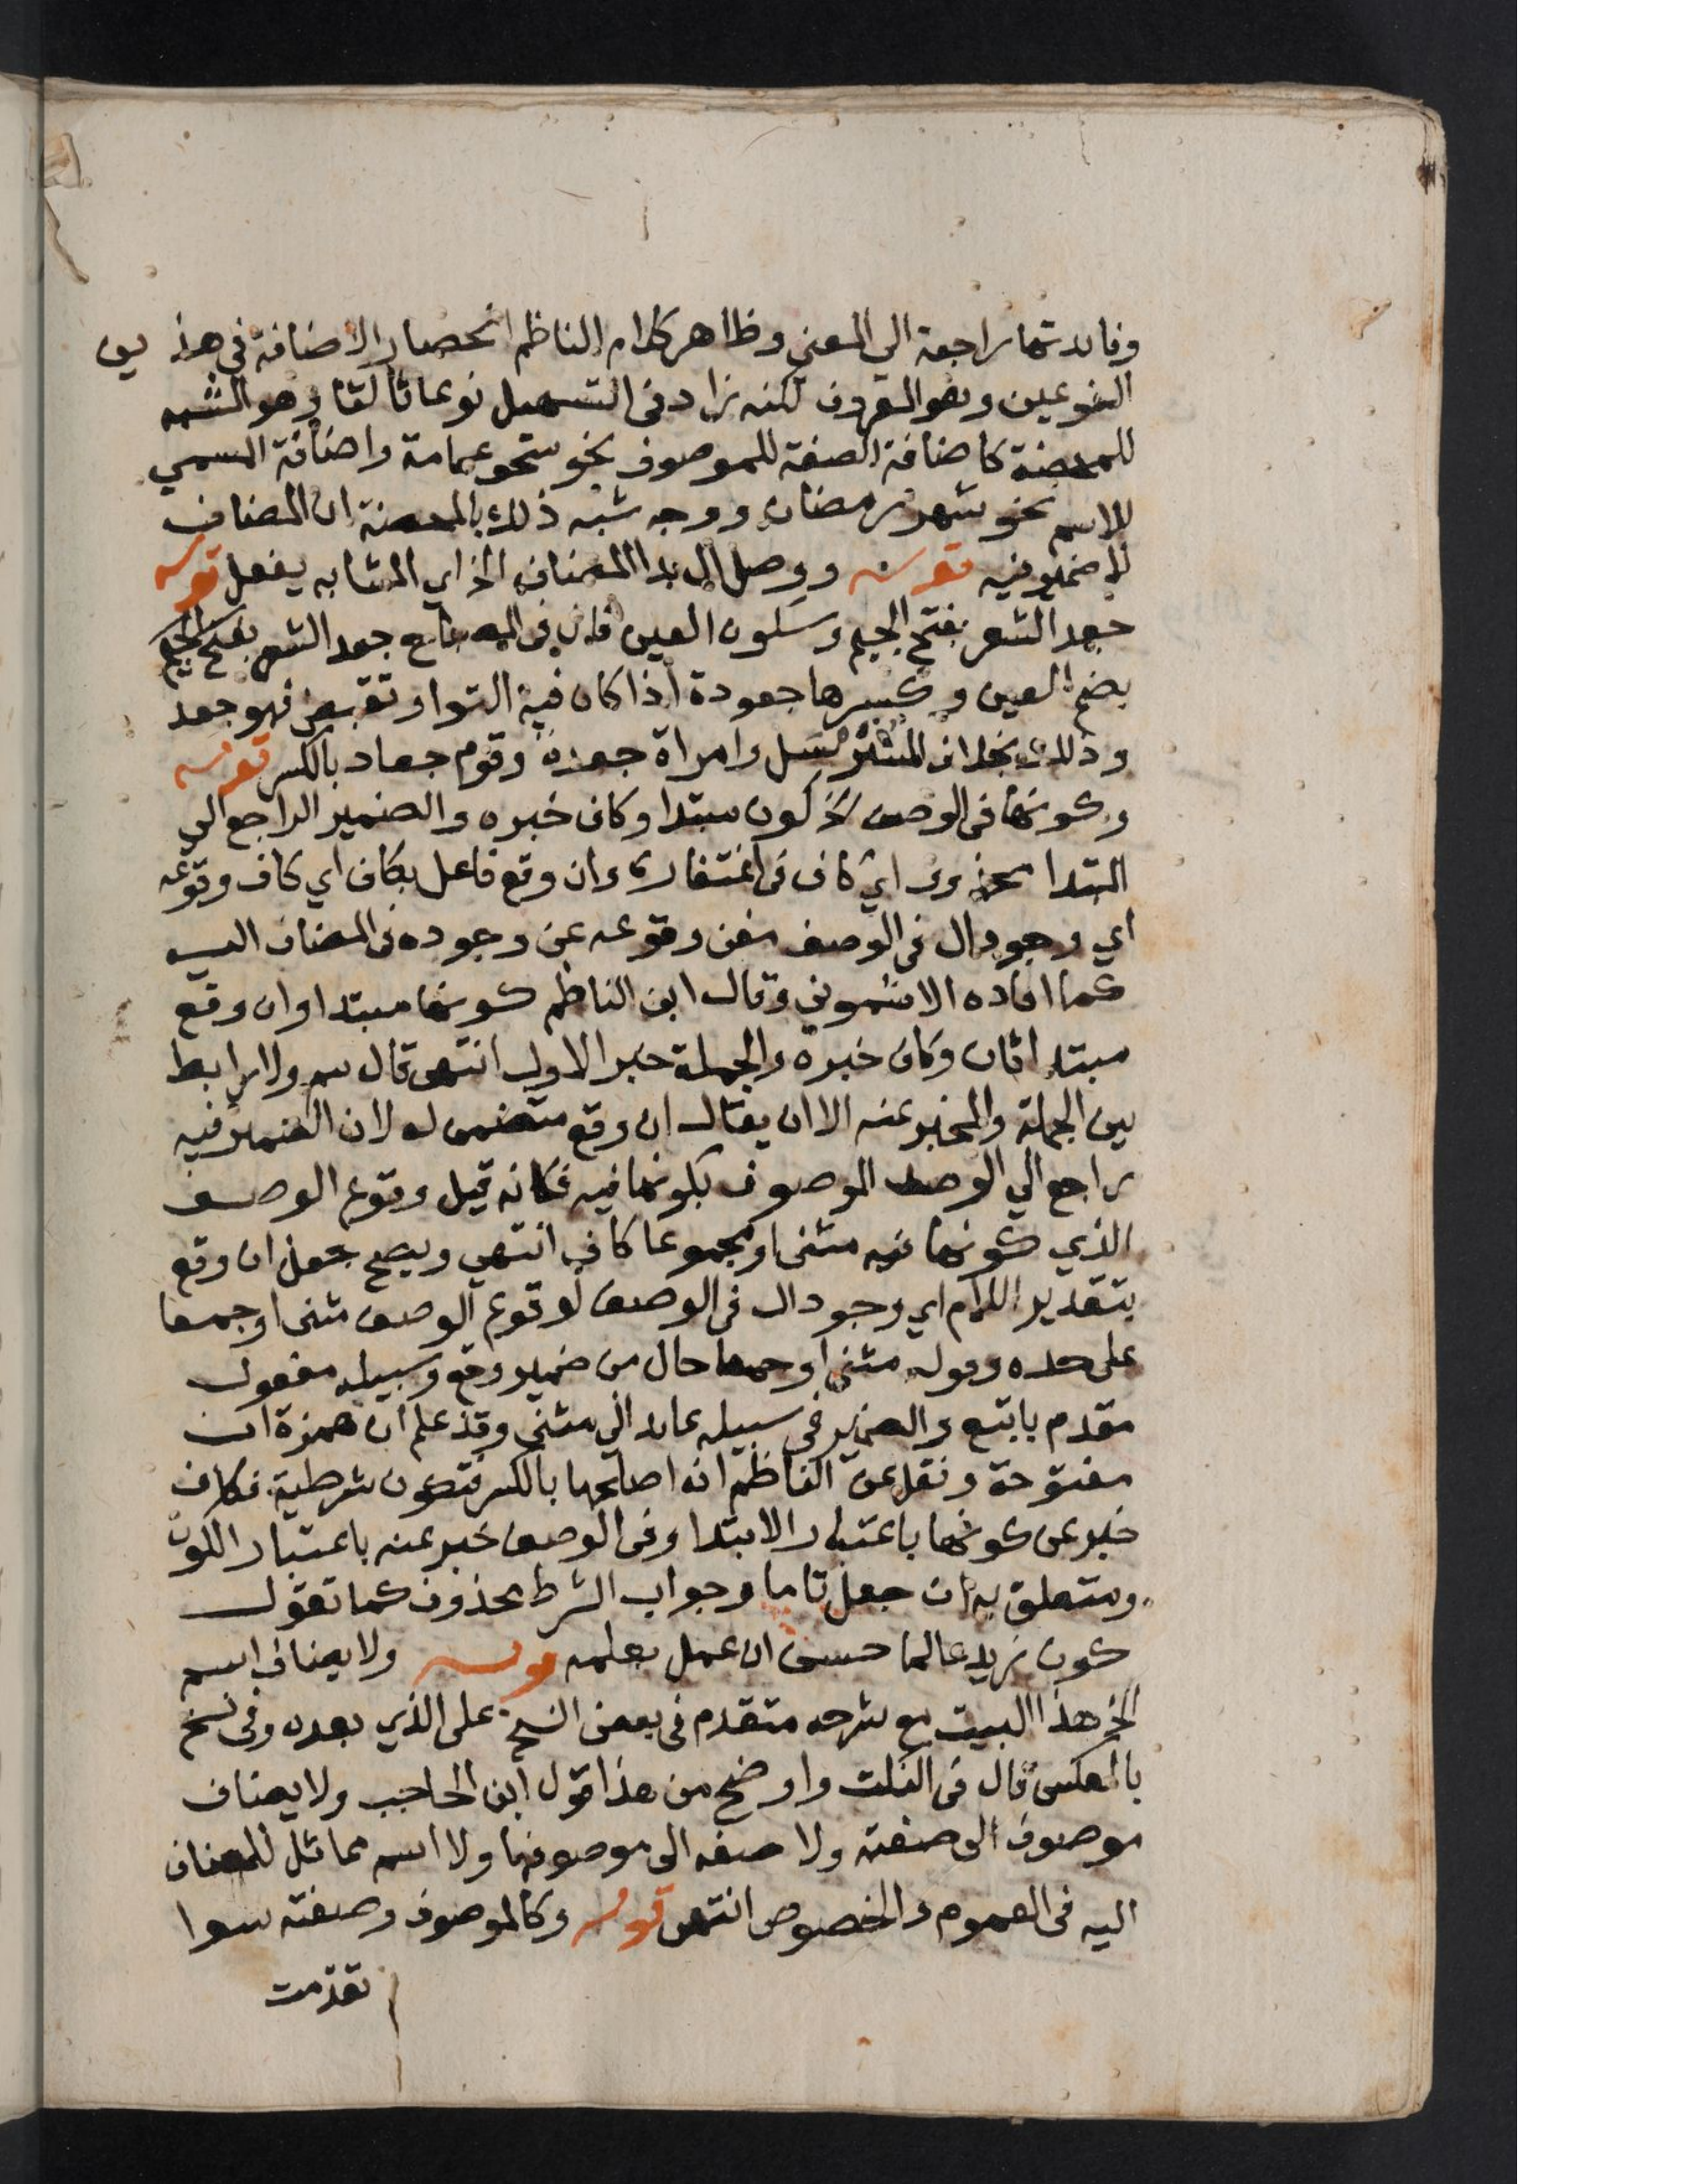 وفايدتها راجعة الي المعني وظاهر كلام الناظم انحصار الاضافة في هذين
النوعين وهو المعروف لكنه زاد في التسهيل نوعا ثالثا وهو الشبه
للمحضة كاضافة الصفة للموصوف نحو سحق عمامة واضافة المسمي
للاسم نحو شهر رمضان ووجه شبه ذلك بالمحضة ان المضاف
لا ضمير فيه قوله ووصل ال بذا المضاف الخ اي المشابه يفعل قوله
جعد الشعر بفتح الجيم وسكون العين قال في المصباح جعد الشعر بفتح الجيم
بضم العين وكسرها جعودة اذا كان فيه التوا وتقبض فهو جعد
وذلك بخلاف المسترسل وامراة جعدة وقوم جعاد بالكسر قوله
وكونها في الوصف الخ كون مبتدا وكاف خبره والضمير الراجع الي
المبتدا محذوف اي كاف في اغتفاره وان وقع فاعل بكاف اي كاف وقوعه
اي وجود ال في الوصف مغن وقوعه عن وجوده في المضاف اليه
كما افاده الاشموني وقال ابن الناظم كونها مبتدا وان وقع
مبتدا ثان وكاف خبره والجملة خبر الاول انتهى قال سم ولا رابط
بين الجملة والمخبر عنه الا ان يقال ان وقع متضمن له لان الضمير فيه
راجع الي الوصف الموصوف بكونها فيه فكانه قيل وقوع الوصف
الذي كونها فيه مثنى او مجموعا كاف انتهي ويصح جعل ان وقع
بتقدير اللام اي وجود ال في الوصف لوقوع الوصف مثنى او جمعا
على حده وقوله مثنى او جمعا حال من ضمير وقع وسبيله مفعول
مقدم باتبع والضمير في سبيله عايد الي مثنى وقد علم ان همزة ان
مفتوحة ونقل عن الناظم انه اصلحها بالكسر فتكون شرطية فكاف
خبر عن كونها باعتبار الابتدا وفي الوصف خبر عنه باعتبار الكون
ومتعلق به ان جعل تاما وجواب الشرط محذوف كما تقول
كون زيد عالما حسن ان عمل بعلمه قوله ولا يضاف اسم
الخ هذا البيت مع شرحه متقدم في بعض النسخ على الذي بعده وفي نسخ
بالعكس قال في النكت واوضح من هذا قول ابن الحاجب ولا يضاف
موصوف الى صفته ولا صفة الى موصوفها ولا اسم مماثل للمضاف
اليه في العموم والخصوص انتهى قوله وكالموصوف وصفته سوا
تقدمت